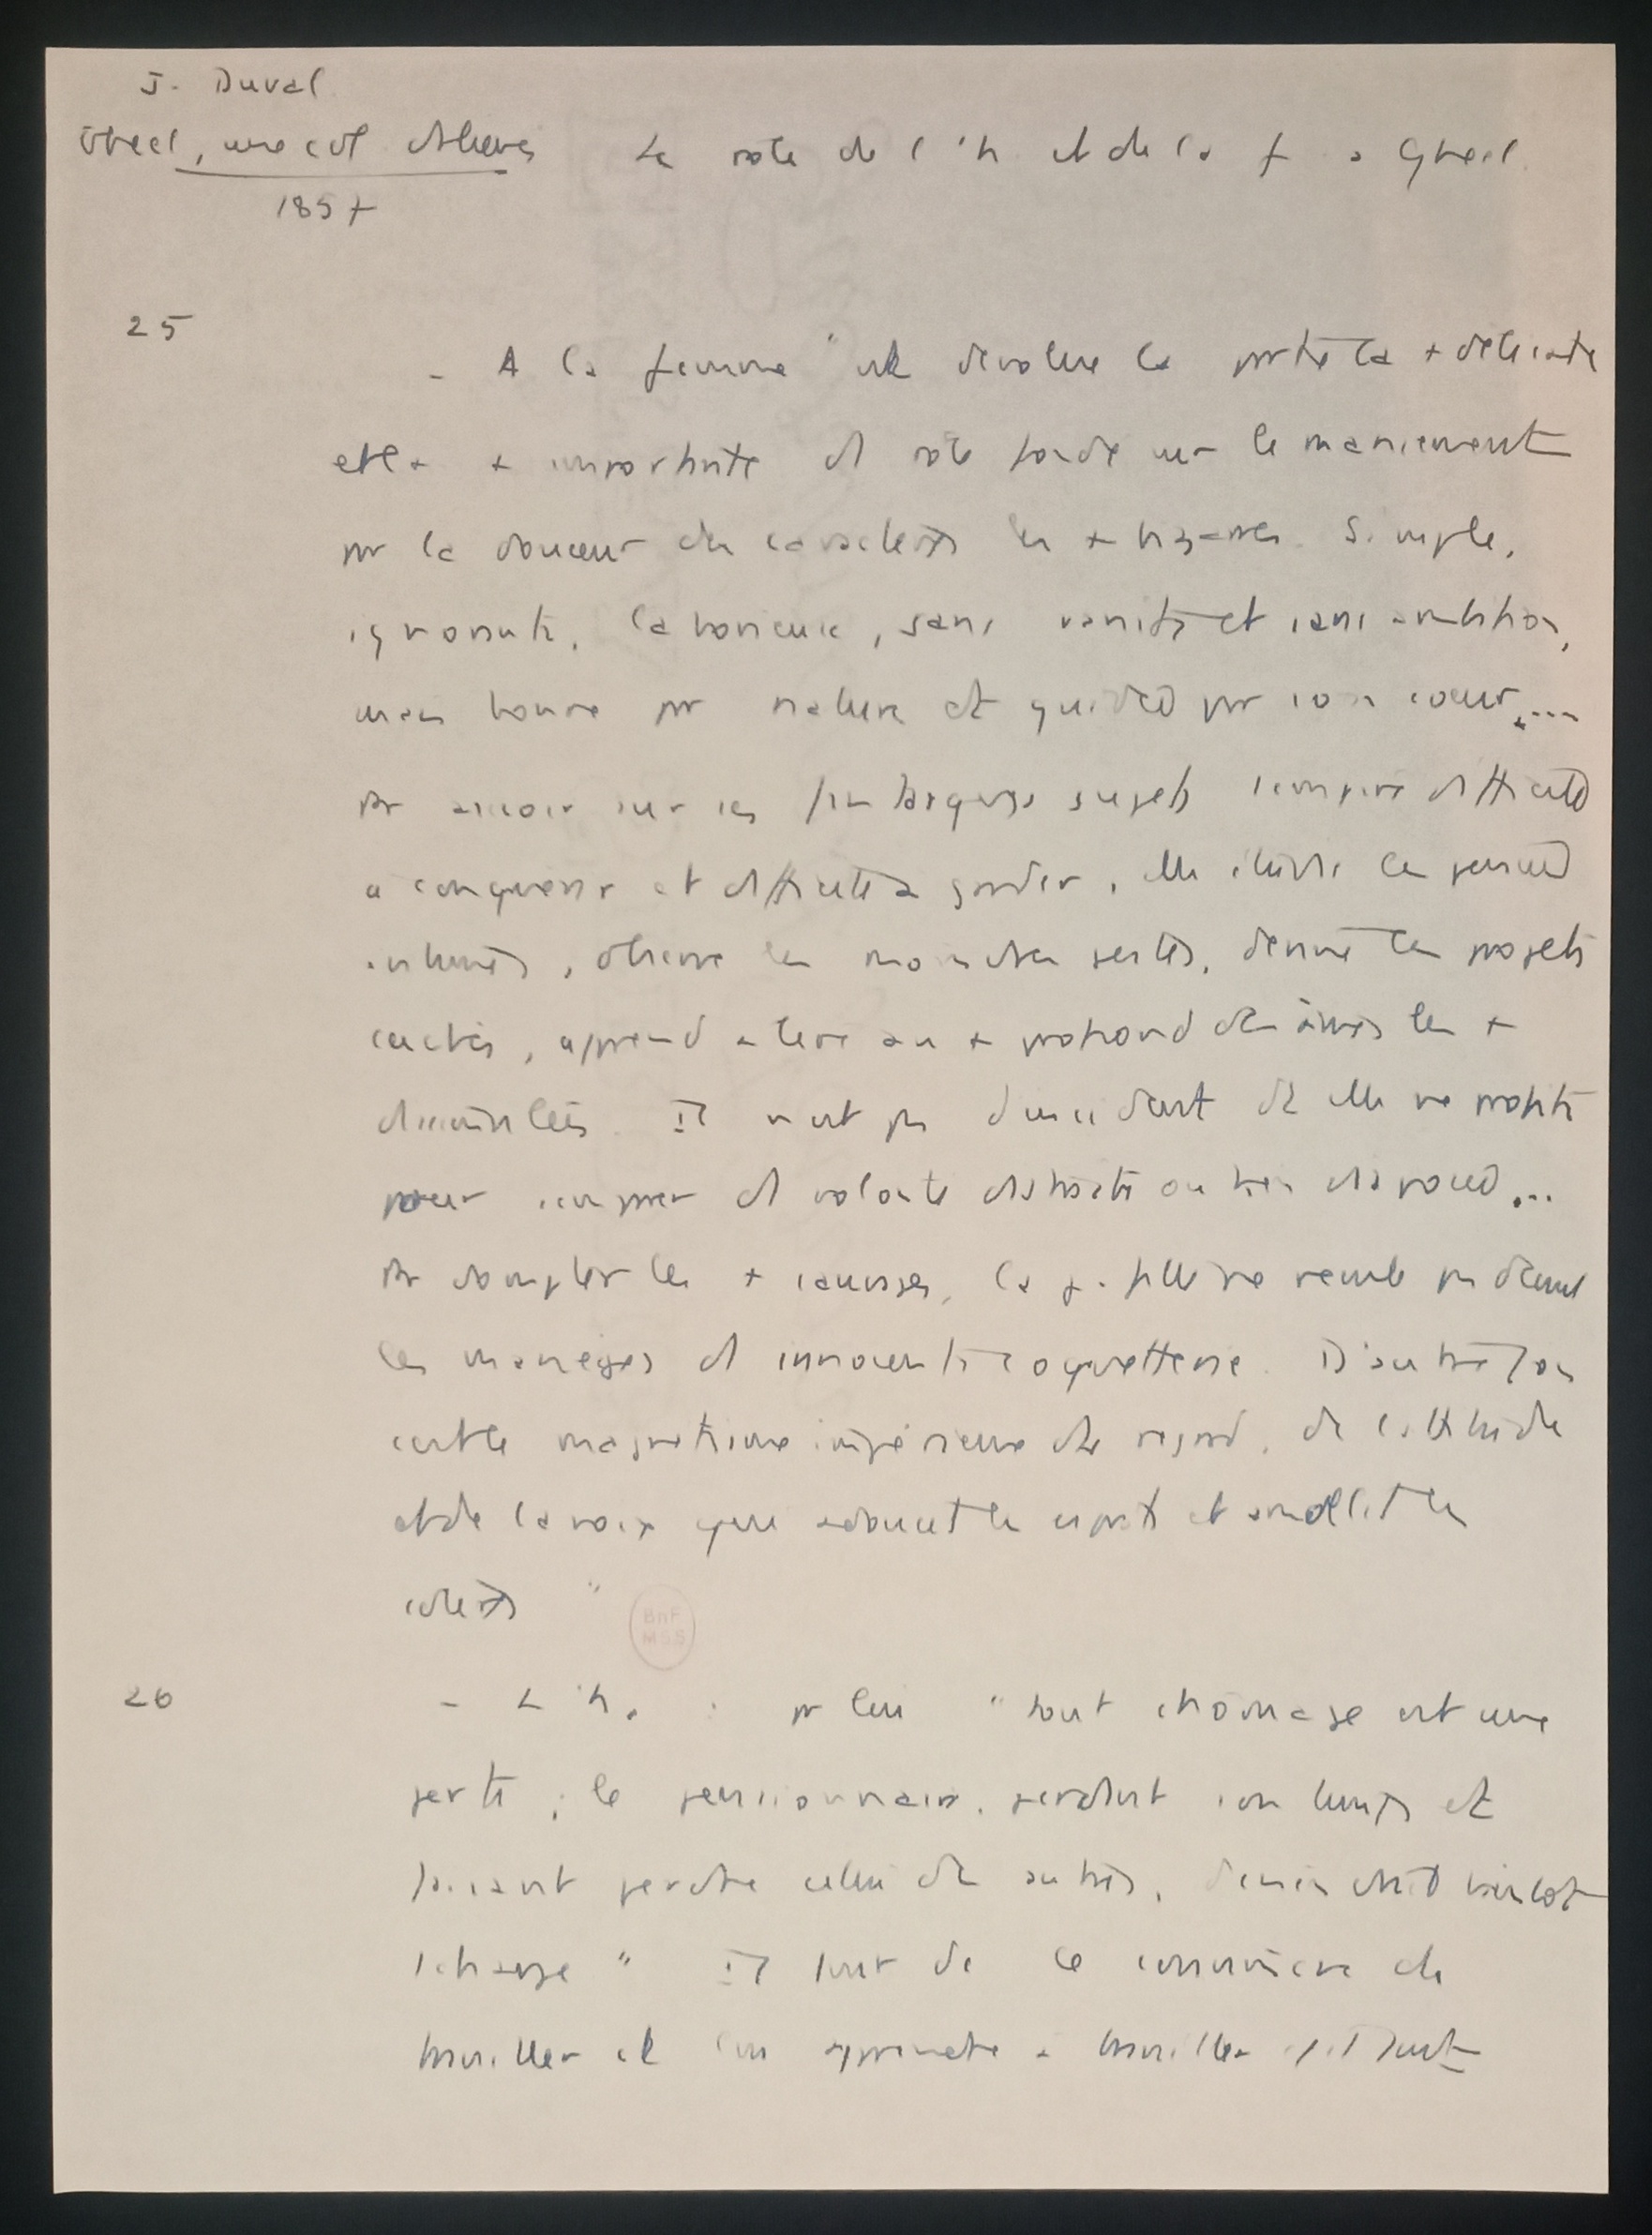 J. Duval
Gheel, une col d'aliénés Le rôle de l'h. et de la f. à Gheel.
1857
25
- A la femme "est dévolue la partie la + délicate
et la + importante d rôle fondé sur le maniement
par la douceur des caractères les + bizarres. Simple,
ignorante, laborieuse, sans vanité et sans ambition,
mais bonne par nature et guidée par son coeur, ...
pr assoir sur ces fantasques sujets l'empire difficile
à conquérir et difficile à garder, elle étudie les pensées
intimes, observe les moindres gestes, devine les projets
cachés, apprend à lire au + profond des âmes les +
dissimulées. Il n'est pas d'incident dt elle ne profite
pour s'emparer d volontés distraites ou bien disposées...
Pr dompter les + sauvages, la j. fille ne recule pas devant
les manèges d innocente coquetterie. D'autres fois
c'est le magnétisme impérieux du regard, de l'attitude
et de la voix qui adoucit les esprits et amollit les
colères "
BnF
MSS
26
- L'h. : pr lui "tout chômage est une
perte ; le pensionnaire, perdant son temps et
faisant perdre celui des autres, deviendrait bientôt
à charge" Il faut de le convaincre de
travailler et lui apprendre à travailler s'il faut